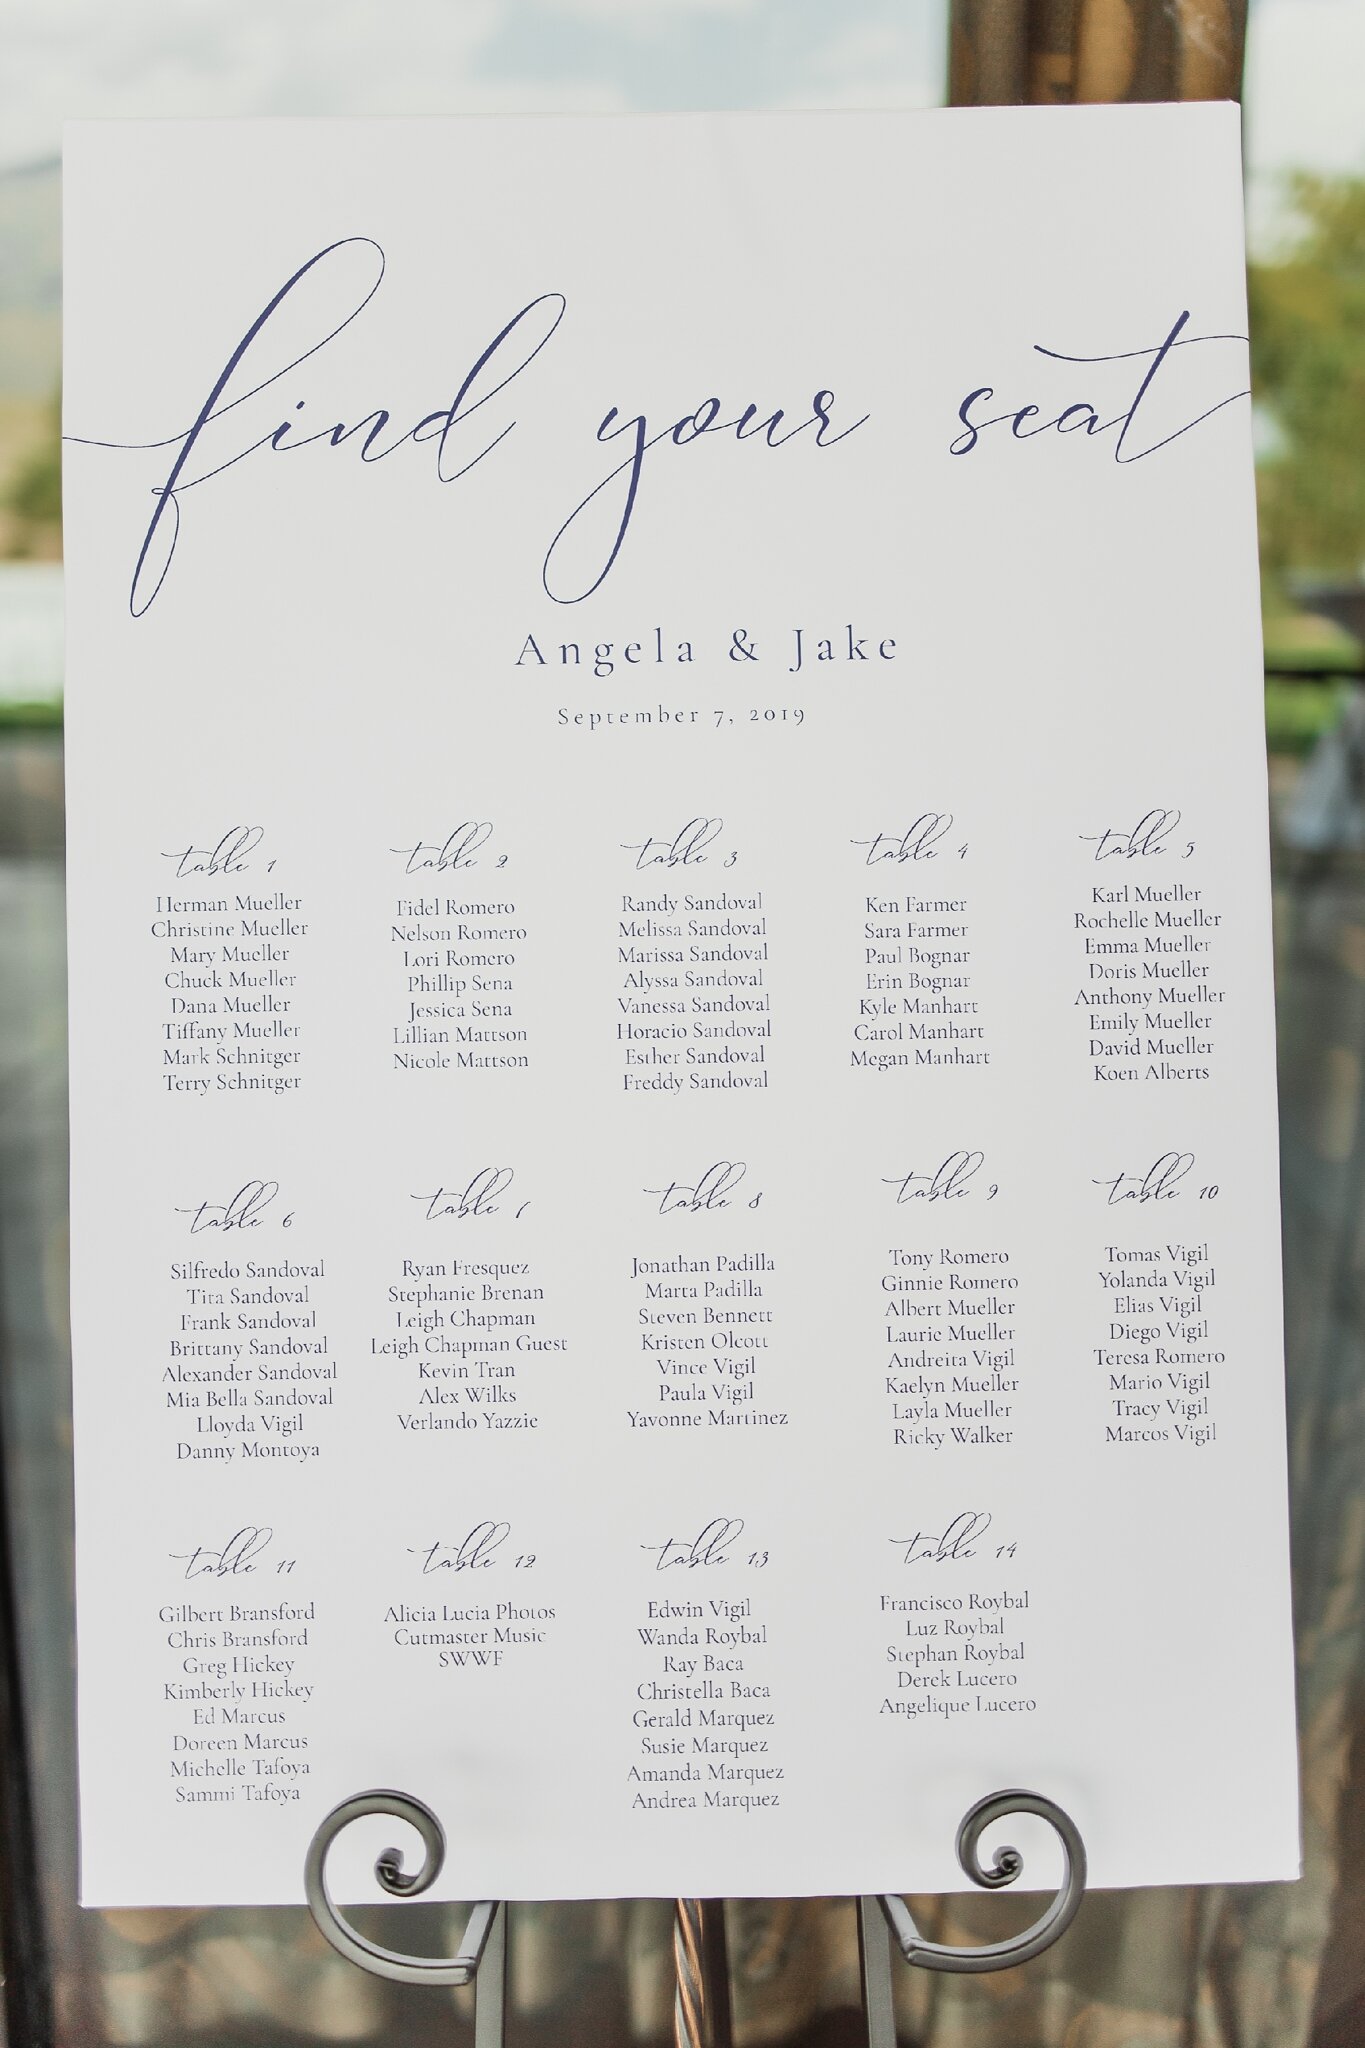 find your seat
Angela & Jake
September 7, 2019
table 1
Herman Mueller
Christine Mueller
Mary Mueller
Chuck Mueller
Dana Mueller
Tiffany Mueller
Mark Schnitger
Terry Schnitger
table 2
Fidel Romero
Nelson Romero
Lori Romero
Phillip Sena
Jessica Sena
Lillian Mattson
Nicole Mattson
table 3
Randy Sandoval
Melissa Sandoval
Marissa Sandoval
Alyssa Sandoval
Vanessa Sandoval
Horacio Sandoval
Esther Sandoval
Freddy Sandoval
table 4
Ken Farmer
Sara Farmer
Paul Bognar
Erin Bognar
Kyle Manhart
Carol Manhart
Megan Manhart
table 5
Karl Mueller
Rochelle Mueller
Emma Mueller
Doris Mueller
Anthony Mueller
Emily Mueller
David Mueller
Koen Alberts
table 6
Silfredo Sandoval
Tita Sandoval
Frank Sandoval
Brittany Sandoval
Alexander Sandoval
Mia Bella Sandoval
Lloyda Vigil
Danny Montoya
table 7
Ryan Fresquez
Stephanie Brenan
Leigh Chapman
Leigh Chapman Guest
Kevin Tran
Alex Wilks
Verlando Yazzie
table 8
Jonathan Padilla
Marta Padilla
Steven Bennett
Kristen Olcott
Vince Vigil
Paula Vigil
Yavonne Martinez
table 9
Tony Romero
Ginnie Romero
Albert Mueller
Laurie Mueller
Andreita Vigil
Kaelyn Mueller
Layla Mueller
Ricky Walker
table 10
Tomas Vigil
Yolanda Vigil
Elias Vigil
Diego Vigil
Teresa Romero
Mario Vigil
Tracy Vigil
Marcos Vigil
table 11
Gilbert Bransford
Chris Bransford
Greg Hickey
Kimberly Hickey
Ed Marcus
Doreen Marcus
Michelle Tafoya
Sammi Tafoya
table 12
Alicia Lucia Photos
Cutmaster Music
SWWF
table 13
Edwin Vigil
Wanda Roybal
Ray Baca
Christella Baca
Gerald Marquez
Susie Marquez
Amanda Marquez
Andrea Marquez
table 14
Francisco Roybal
Luz Roybal
Stephan Roybal
Derek Lucero
Angelique Lucero